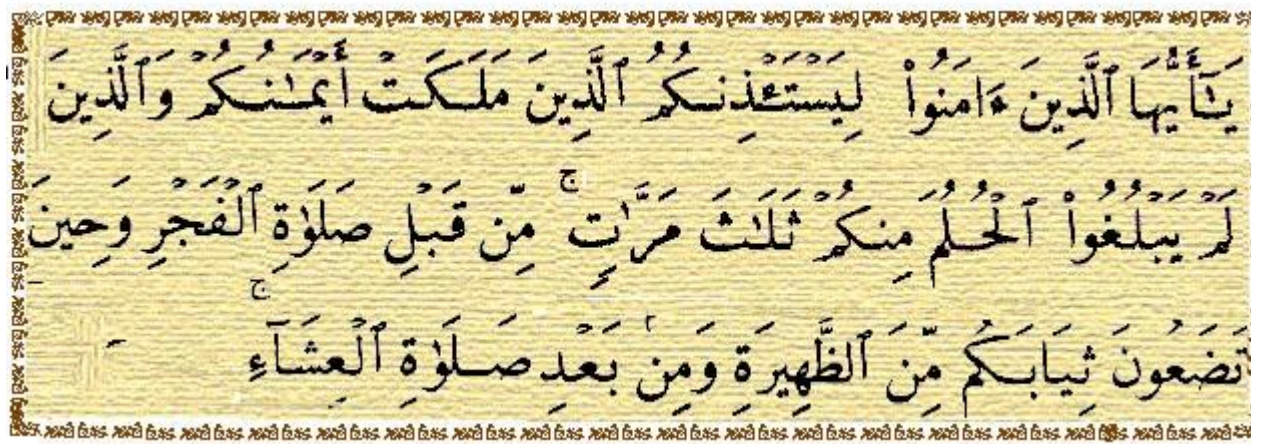 يَـٰٓأَيُّهَا ٱلَّذِينَ ءَامَنُوا۟ لِيَسْتَـْٔذِنكُمُ ٱلَّذِينَ مَلَكَتْ أَيْمَـٰنُكُمْ وَٱلَّذِينَ
لَمْ يَبْلُغُوا۟ ٱلْحُلُمَ مِنكُمْ ثَلَـٰثَ مَرَّٰتٍ ۚ مِّن قَبْلِ صَلَوٰةِ ٱلْفَجْرِ وَحِينَ
تَضَعُونَ ثِيَابَكُم مِّنَ ٱلظَّهِيرَةِ وَمِنۢ بَعْدِ صَلَوٰةِ ٱلْعِشَآءِ ۚ